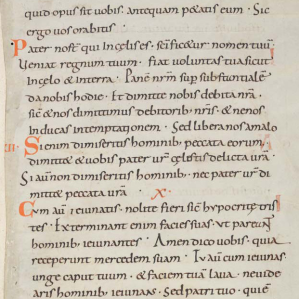 quid opus sit uobis · antequam petatis eum · Sic
ergo uos orabitis ·
Pater nost̄ qui Incęlis es · sc̄ificet̄ur nomen tuū ·
Ueniat regnum tuum · fiat uoluntas tua sicut
Incęlo & interra · Panē nr̄m sup substantialē
da nobis hodie · Et dimitte nobis debita nr̄a ·
sic & nos dimittimus debitorib; nr̄is · & ne nos
Inducas intemptationem · Sed libera nos amalo
XIII · Si enim dimiseritis hominib; peccata eorum
dimitt& & uobis pater ur̄ cęlestis delicta ur̄a
Si aū non dimiseritis hominib; nec pater ur̄ di
mitt& peccata ur̄a · X ·
Cum aū ieiunatis · nolite fieri sic̄ hypocritę tris
tes · Exterminant enim facies suas · ut pareant
hominib; ieiunantes · Amen dico uobis · quia
receperunt mercedem suam · Tu aū cum ieiunas
unge caput tuum · & faciem tuā laua · ne uide
aris hominib; ieiunans · Sed patri tuo · qui ē